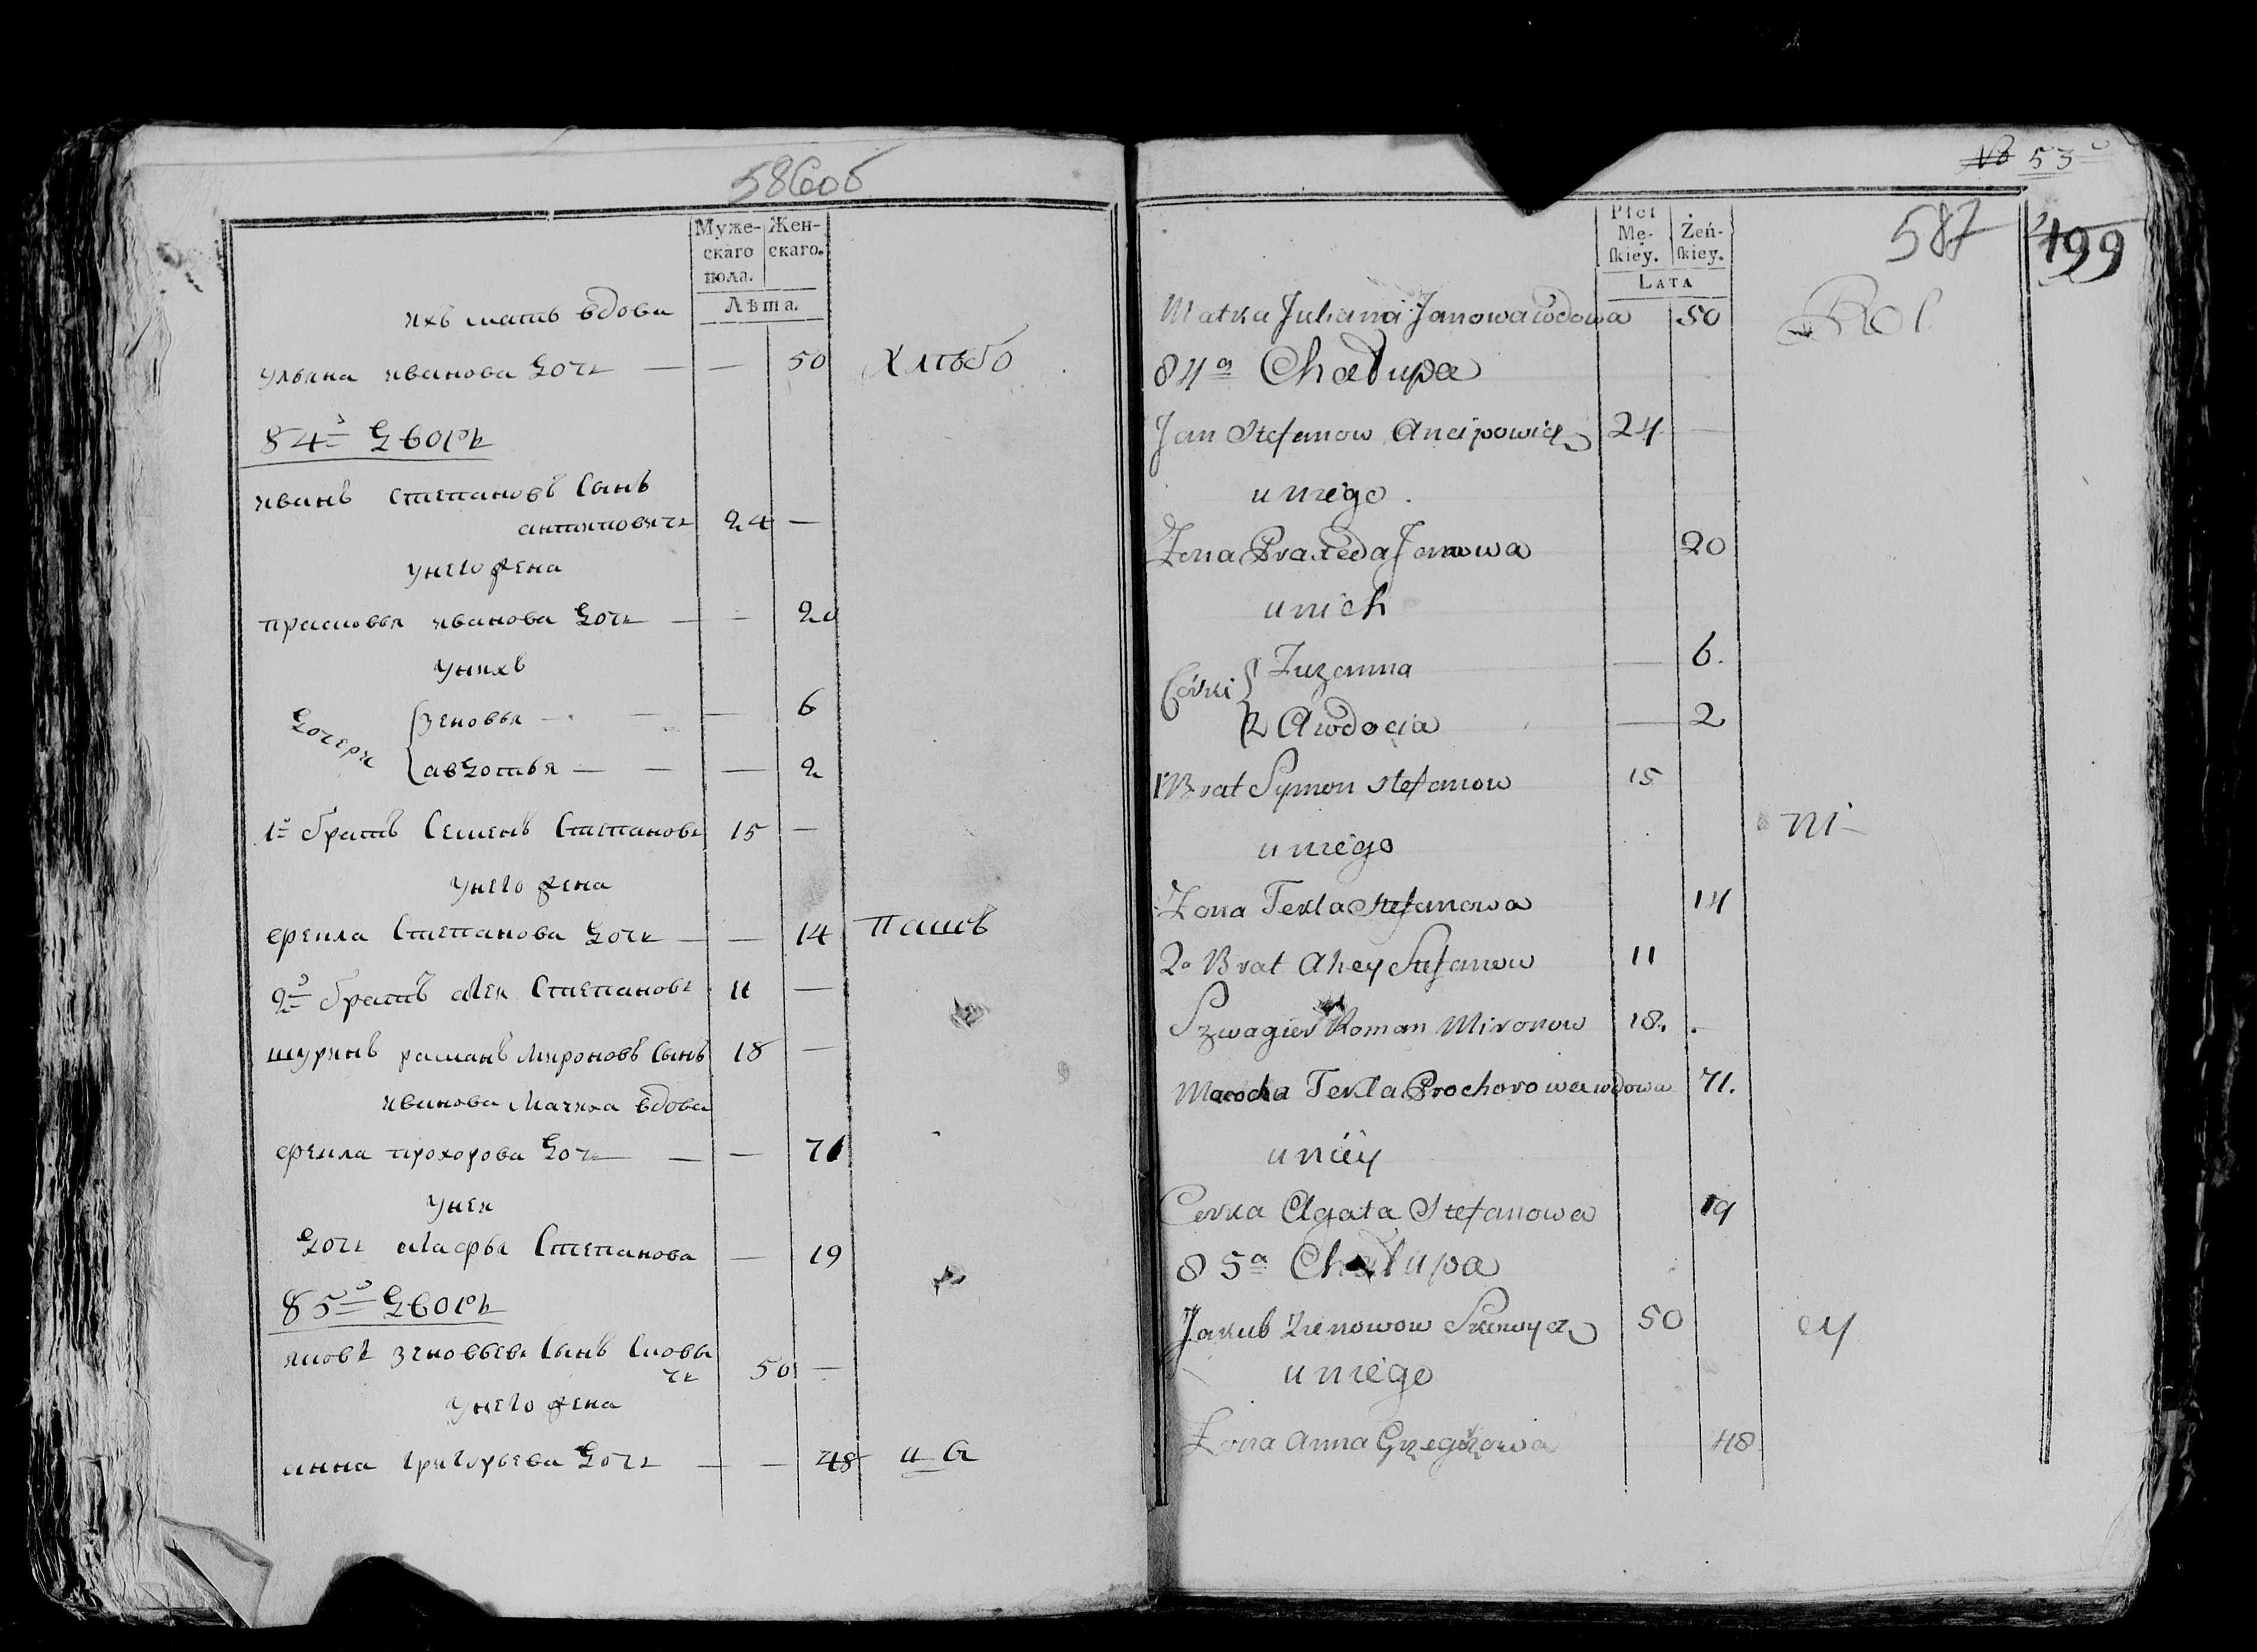 586об
Муже-
скаго
пола.
Жен-
скаго.
Лѣта.
ихъ мать вдова
ульяна иванова дочь — — 50 хлѣбо
84й дворъ
иванъ степановъ сынъ
антиповичъ 24 —
у него жена
прасковья иванова дочь — — 20
у нихъ
дочери
зеновья — — — 6
авдотья — — — 2
1й братъ семенъ степановъ 15 —
у него жена
фекла степанова дочь — — 14 пашъ
2й братъ степановъ 11 —
шуринъ романъ мироновъ сынъ 18 —
иванова мачиха вдова
фекла прохорова дочь — — 71
у нея
дочь агафья степанова — 19
85й дворъ
яковъ зеновьевъ сынъ
50 —
у него жена
анна григорьева дочь — — 48
53
587
199
Płci
Mę-
skiey.
Żeń-
skiey.
Lata
Matka Juliana Janowa wdowa 50 Rol
84a Chałupa
Jan Stefanow Ancipowicz 24 —
u niego
Żona Praxeda Janowa 20
u nich
Córki
Zuzanna — 6.
2 Awdocia — 2
1 Brat Symon Stefanow 15
ni-
u niego
Żona Tekla Stefanowa 14
2a Brat Stefanow 11
Szwagier Roman Mironow 18.
Macocha Tekla Prochorowa wdowa 71.
u niey
Corka Agata Stefanowa 19
85a Chałupa
Jakub Zienowow 50 cy
u niego
Żona Anna Grzegorzowa 48